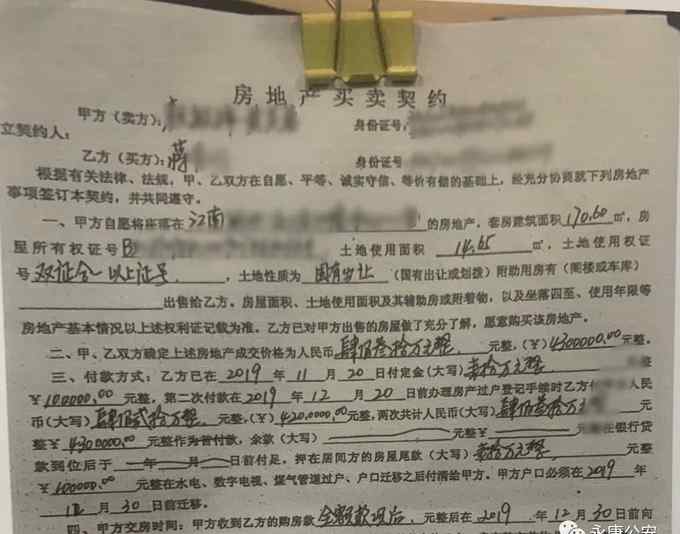 房地产买卖契约
甲方（卖方）：
身份证号：
立契约人：
乙方（买方）：蒋
身份证号：
根据有关法律、法规，甲、乙双方在自愿、平等、诚实守信、等价有偿的基础上，经充分协商就下列房地产
事项签订本契约，并共同遵守。
一、甲方自愿将座落在 江南 的房地产，套房建筑面积 170.60 ㎡，房
屋所有权证号 B 土地使用面积 14.65 ㎡，土地使用权证
号 双证合一以上证号 ，土地性质为 国有出让 （国有出让或划拨）附助用房有（阁楼或车库）
出售给乙方。房屋面积、土地使用面积及其辅助房或附着物，以及坐落四至、使用年限等
房地产基本情况以上述权利证记载为准。乙方已对甲方出售的房屋做了充分了解，愿意购买该房地产。
二、甲、乙双方确定上述房地产成交价格为人民币 肆佰叁拾万元整 元整，（￥）4300000.00 元整。
三、付款方式：乙方已在 2019 年 11 月 20 日付定金(大写) 壹拾万元整 元整
￥ 100000.00 元整，第二次付款在 2019 年 12 月 20 日前办理房产过户登记手续时乙方付 人民
币（大写） 肆佰贰拾万整 元整，（￥） 4200000.00 元整，两次共计人民币(大写) 肆佰叁拾万元整 元
整￥ 4300000.00 元整作为首付款，余款（大写） 元整￥ 元 在银行贷
款到位后于 年 月 日前付足，押在居间方的房屋尾款（大写） 壹拾万元整 元整
￥ 100000.00 元整在水电、数字电视、煤气管道过户、户口迁移之后付清给甲方。甲方户口必须在 2019 年
12 月 30 日前迁移。
四、甲方交房时间：甲方收到乙方的购房款 全额款项后 元整后在 2019 年 12 月 30 日前向
永康公安